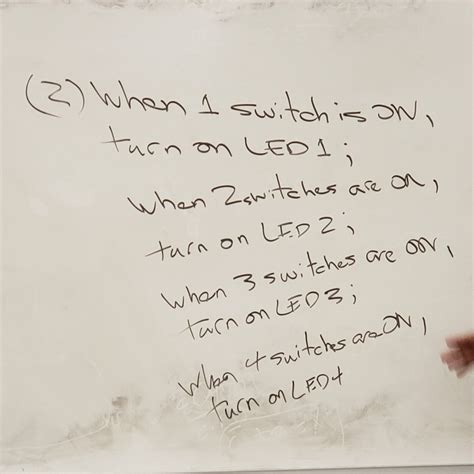 (2) When 1 switch is ON,
turn on LED1;
when 2 switches are on,
turn on LED 2;
when 3 switches are on,
turn on LED3;
when 4 switches are ON,
turn on LED4